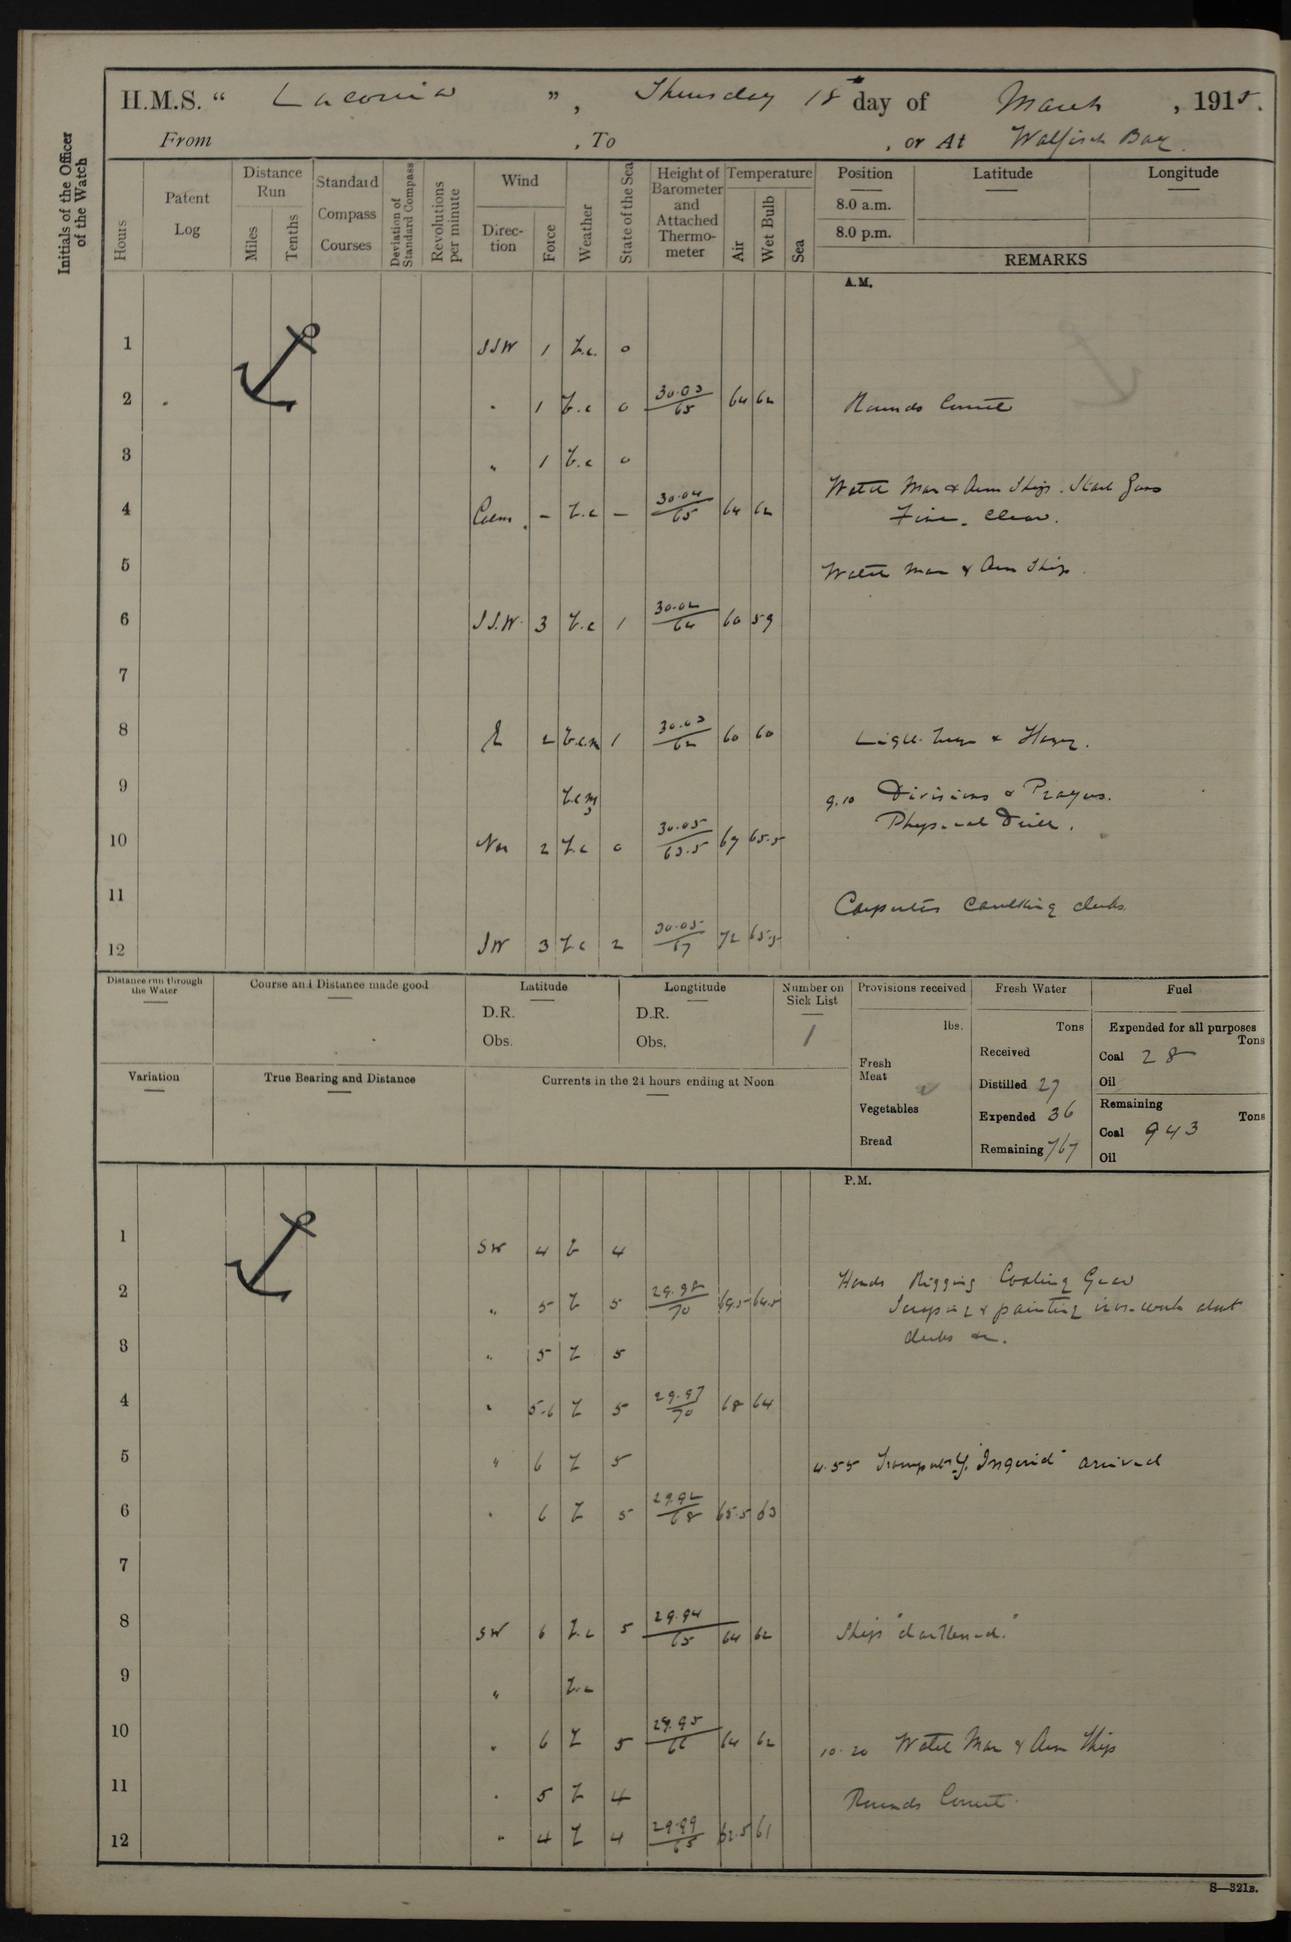 H.M.S. “ Laconia ”, Thursday 18th day of March, 1915.
From , To , or At Walfisch Bay.
Initials of the Officer of the Watch
Hours
Patent Log
Distance Run
Miles Tenths
Standard Compass Courses
Deviation of Standard Compass
Revolutions per minute
Wind
Direction Force
Weather
State of the Sea
Height of Barometer and Attached Thermometer
Temperature
Air Wet Bulb Sea
Position Latitude Longitude
8.0 a.m.
8.0 p.m.
REMARKS
A.M.
1 SSW 1 b.c. 0
2 " 1 b.c 0 30.03/65 64 62 Rounds Correct
3 " 1 b.c 0
Watch Man & Arm Ship.
4 Calm - b.c - 30.04/65 64 62 Fine. Clear.
5 Watch Man & Arm Ship.
6 SSW 3 b.c 1 30.02/64 60 59
7
8 E 2 b.c.m 1 30.03/62 60 60 & Hazy.
9 b.c.m 9.10 Divisions & Prayers.
Physical Drill.
10 2 b.c 0 30.05/63.5 67 65.5
11 Carpenters Caulking decks.
12 SW 3 b.c 2 30.05/67 72 65.5
Distance run through the Water
Course and Distance made good
Latitude
D.R.
Obs.
Longtitude
D.R.
Obs.
Number on Sick List
1
Provisions received
lbs.
Fresh Meat
Vegetables
Bread
Fresh Water
Tons
Received
Distilled 27
Expended 36
Remaining 767
Fuel
Expended for all purposes
Tons
Coal 28
Oil
Remaining
Tons
Coal 943
Oil
Variation
True Bearing and Distance
Currents in the 24 hours ending at Noon
P.M.
1 SW 4 b 4
Hands Rigging Coaling Gear
2 " 5 b 5 29.98/70 69.5 64.5 Scraping & painting iron-work about
decks &c.
3 " 5 b 5
4 " 5-6 b 5 29.97/70 68 64
5 " 6 b 5 4.55 Transport "Ingerid" arrived
6 " 6 b 5 29.92/68 65.5 63
7
8 SW 6 b.c 5 29.94/65 64 62 Ships "darkened."
9 " b.c
10 " 6 b 5 29.95/66 64 62 10.20 Watch Man & Arm Ship
11 " 5 b 4 Rounds Correct.
12 " 4 b 4 29.99/65 62.5 61
S—321B.